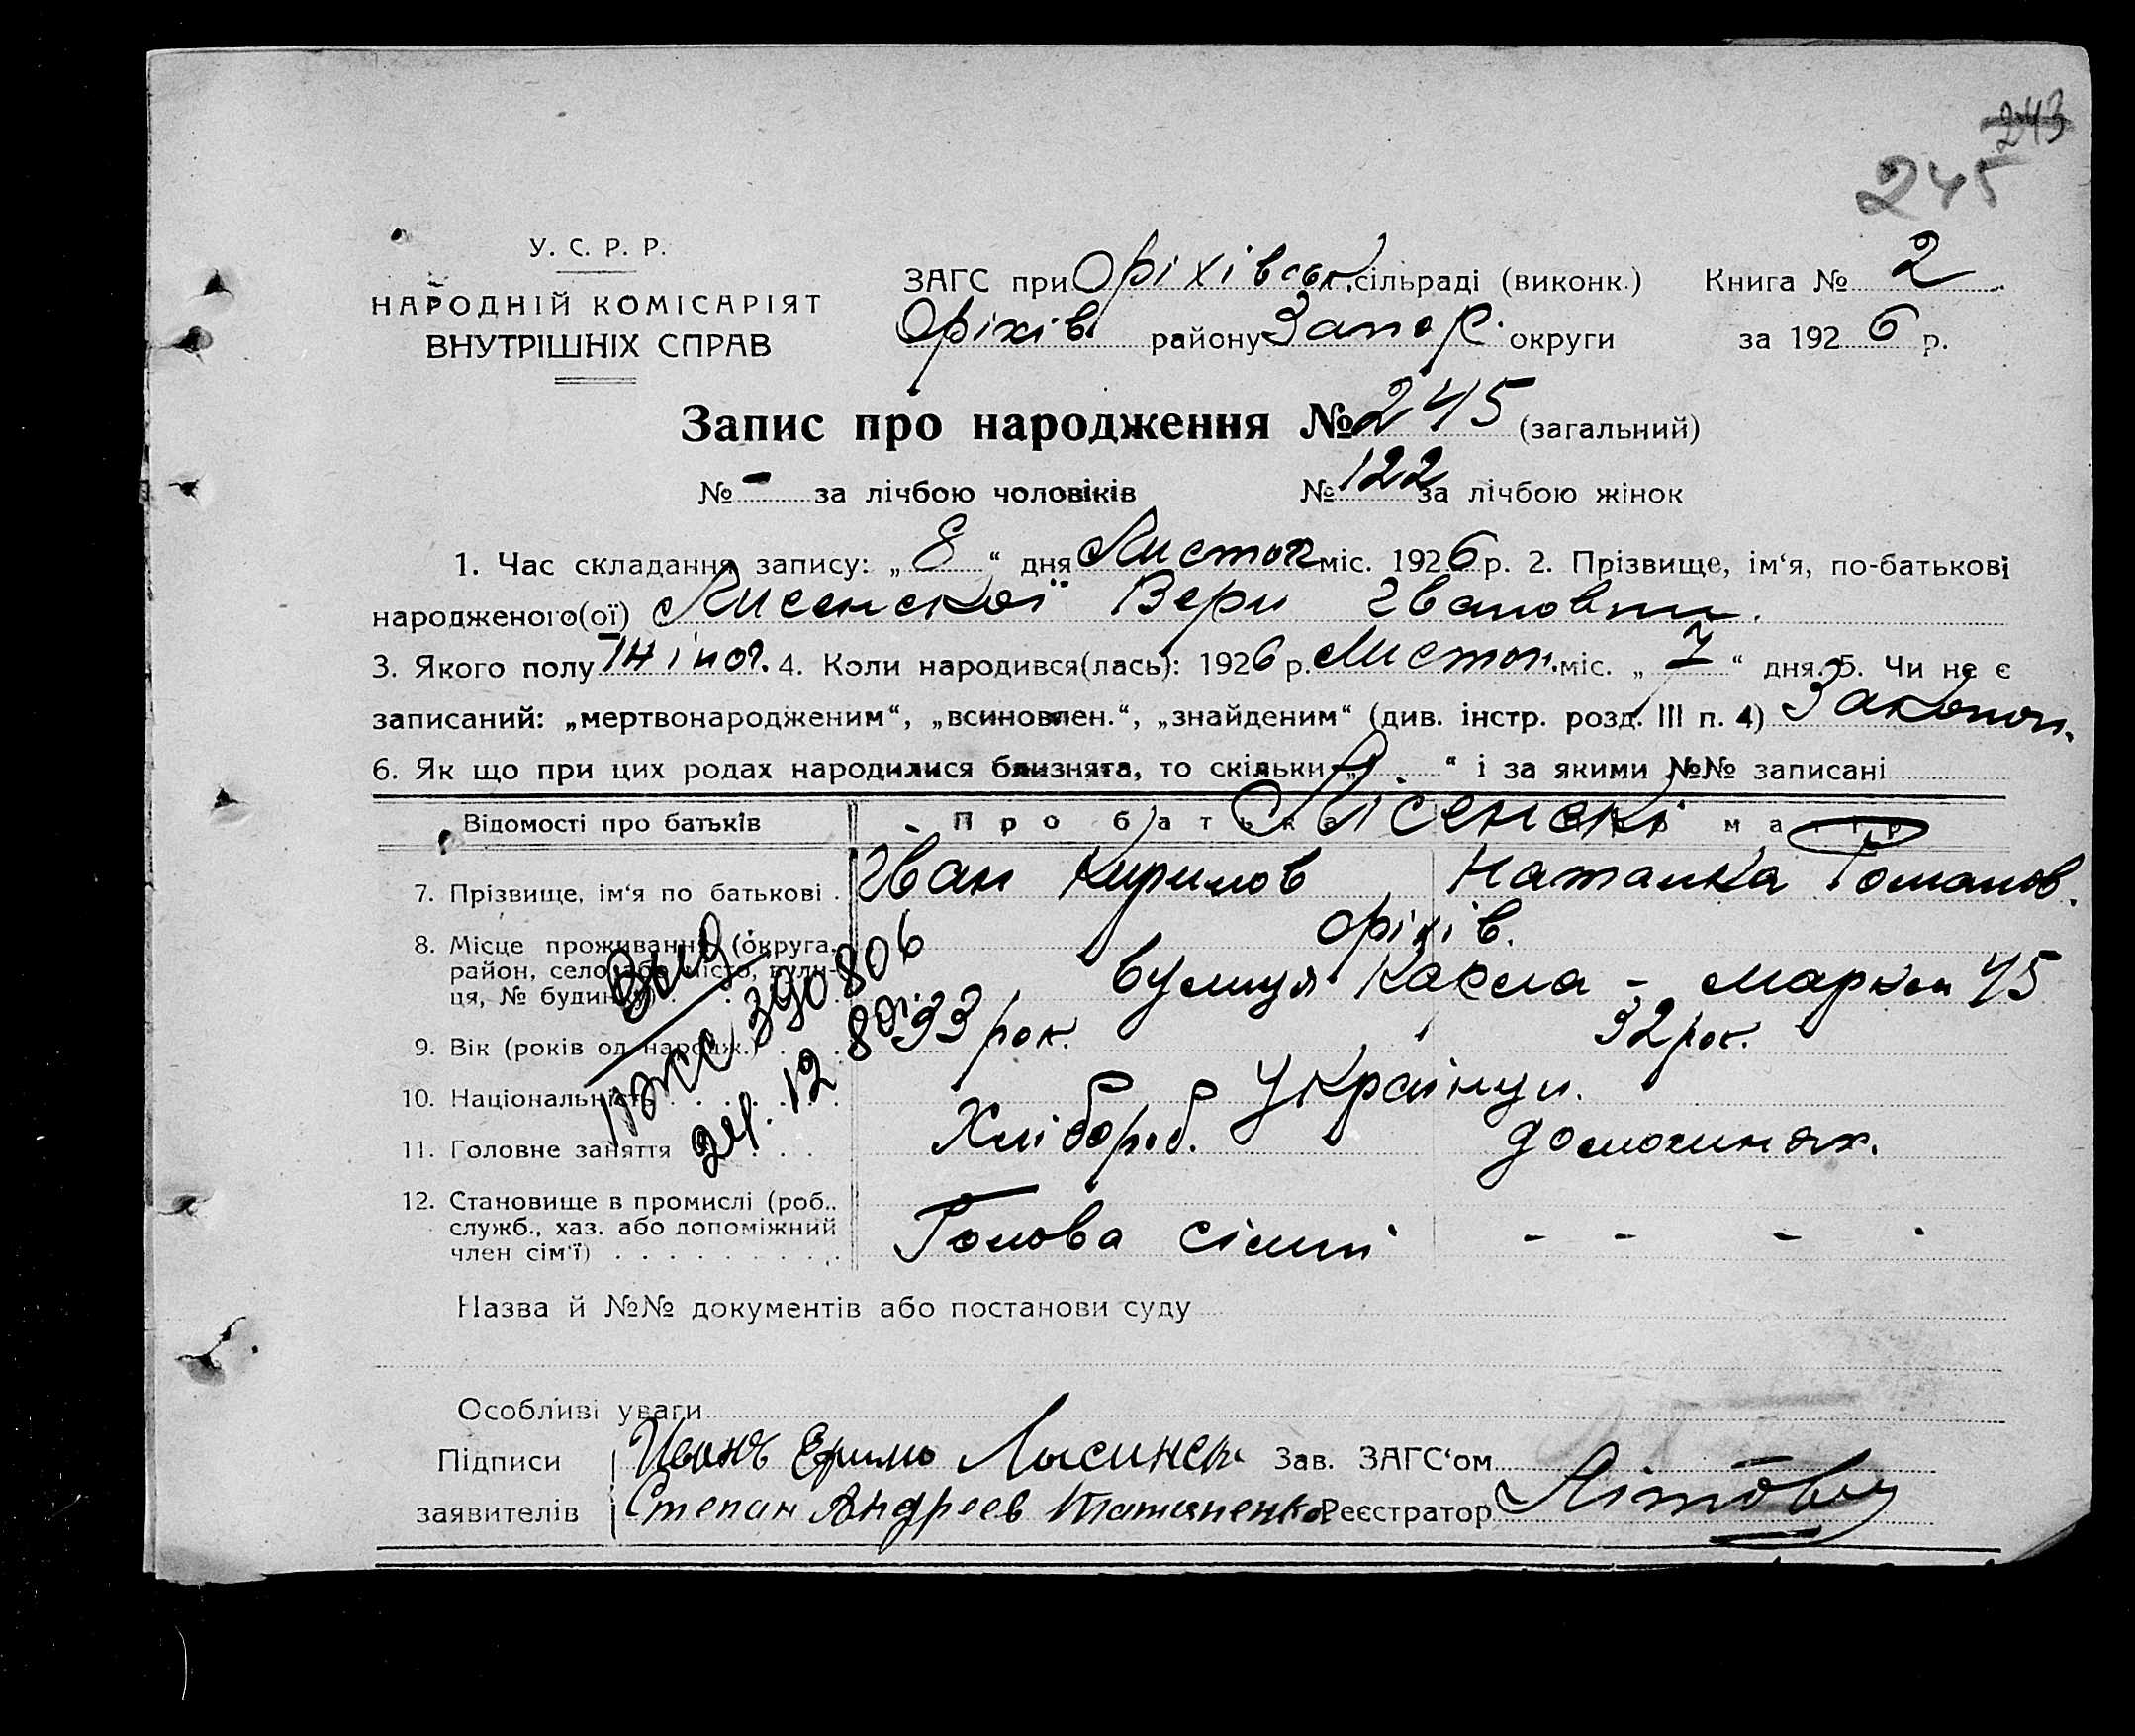 243
245
У. С. Р. Р.
НАРОДНІЙ КОМІСАРІЯТ
ВНУТРІШНІХ СПРАВ
ЗАГС при Оріхівськ. сільраді (виконк.) Книга № 2
Оріхів району Запор. округи за 1926 р.
Запис про народження № 245 (загальний)
№ - за лічбою чоловіків № 122 за лічбою жінок
1. Час складання запису: „ 8 “ дня Листоп міс. 1926 р. 2. Прізвище, ім‘я, по-батькові
народженого(ої) Лисенської Вери Івановни.
3. Якого полу жіноч. 4. Коли народився(лась): 1926 р. Листоп. міс. „ 7 “ дня. 5. Чи не є
записаний: „мертвонародженим“, „всиновлен.“, „знайденим“ (див. інстр. розд. III п. 4) Законон.
6. Як що при цих родах народилися близнята, то скільки „ “ і за якими №№ записані
Відомості про батьків Про батька Про матір
Лісенскі
7. Прізвище, ім‘я по батькові . Іван Кирилов Наталка Романов.
8. Місце проживання (округа, Оріхів.
район, село або місто, вули-
ця, № будинку) вулиця Карла - Маркса 45
9. Вік (років од народж.) 33 рок. 32 рок.
10. Національність Українци.
11. Головне заняття Хлібороб. домохизях.
12. Становище в промислі (роб.,
служб., хаз. або допоміжний
член сім‘ї) Голова сімпі - - -
390806
24. 12. 80
Назва й №№ документів або постанови суду
Особливі уваги
Підписи Иванъ Лысинск Зав. ЗАГС‘ом
заявителів Степан Андреев Татяненко Реєстратор